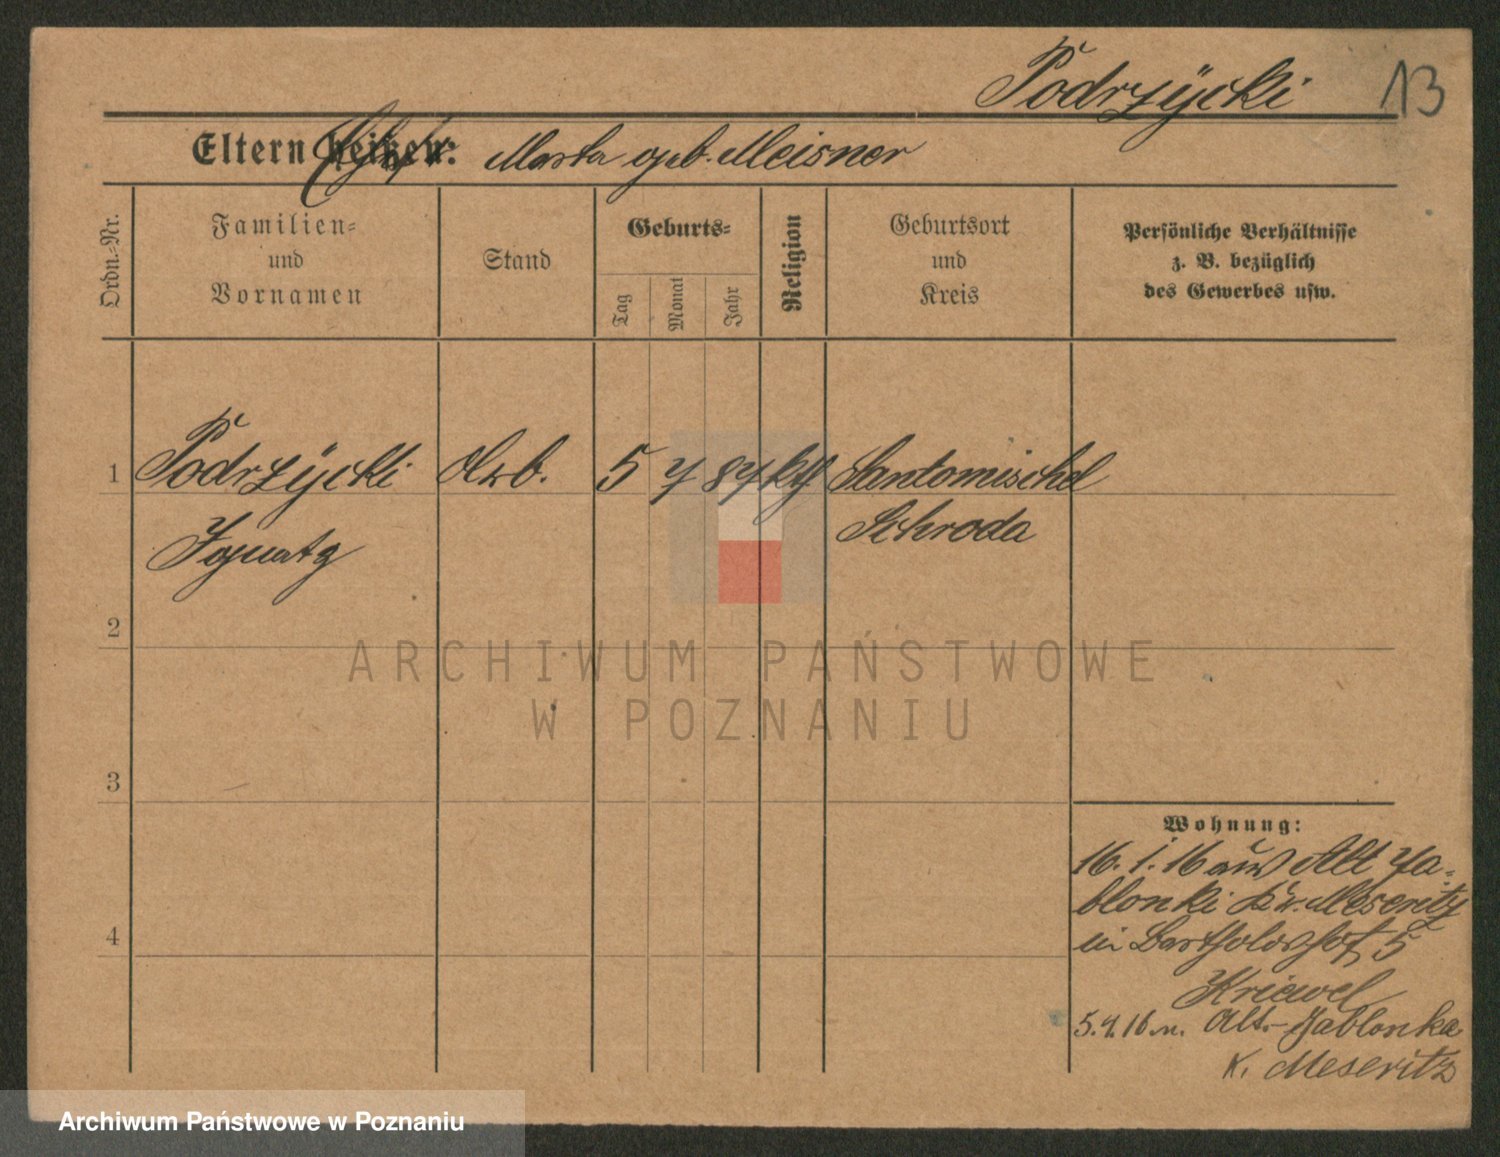 Podrzÿcki 13
Eltern heißen: Marta geb. Meisner
Ordn.-Nr.
Familien-
und
Vornamen
Stand
Geburts-
Tag
Monat
Jahr
Religion
Geburtsort
und
Kreis
Persönliche Verhältnisse
z. B. bezüglich
des Gewerbes usw.
1 Podrzÿcki Arb. 5 7 87 kth Santomischel
Ignatz Schroda
2
3
4
Wohnung:
16. 1. 16 aus Alt Ja-
blonki Kr. Meseritz
in Bartholdshof 5
Kriewel
5.4.16 n. Alt-Jablonka
K. Meseritz
ARCHIWUM PAŃSTWOWE
W POZNANIU
Archiwum Państwowe w Poznaniu